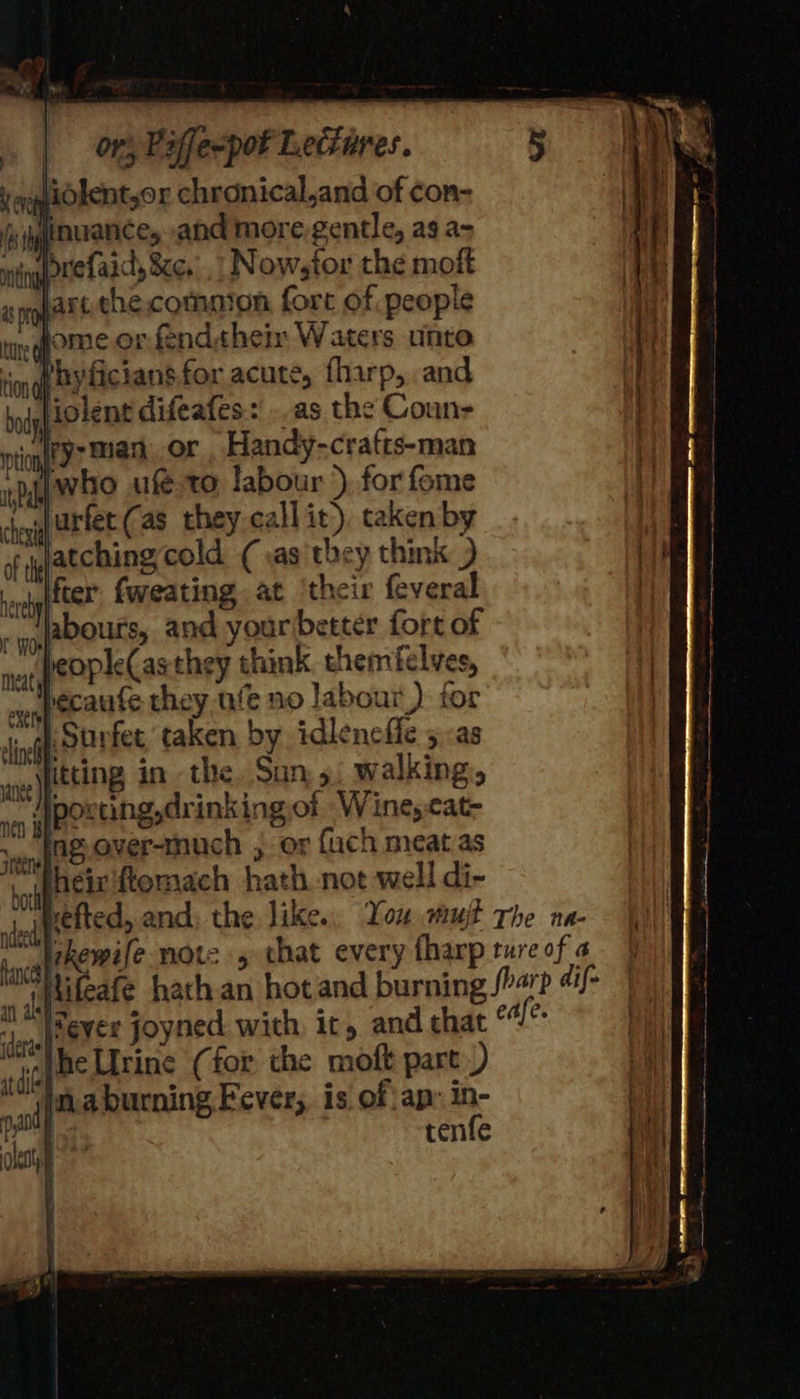 or, Pisse-pot Lectures. 5
iolent, or chronical, and of con-
inuance, and more gentle, as a-
oresaid, &c. Now, for the most
art the common sort of people
ome or send their Waters unto
hysicians for acute, sharp, and
iolent diseases: as the Coun-
ry-man or Handy-crafts-man
who use to labour ) for some
urfet (as they call it) taken by
atching cold ( as they think )
fter sweating at their several
abours, and your better sort of
eople (as they think themselves,
ecause they use no labour ) for
Surfet taken by idlenesse, as
itting in the Sun, walking,
porting, drinking of Wine, eat-
ng over-much ; or such meat as
heir stomach hath not well di-
ested, and the like. You must The na-
ikewise note, that every sharp ture of a
isease hath an hot and burning sharp dis-
Fever joyned with it, and that ease.
he Urine (for the most part )
in a burning Fever, is of an in-
tense